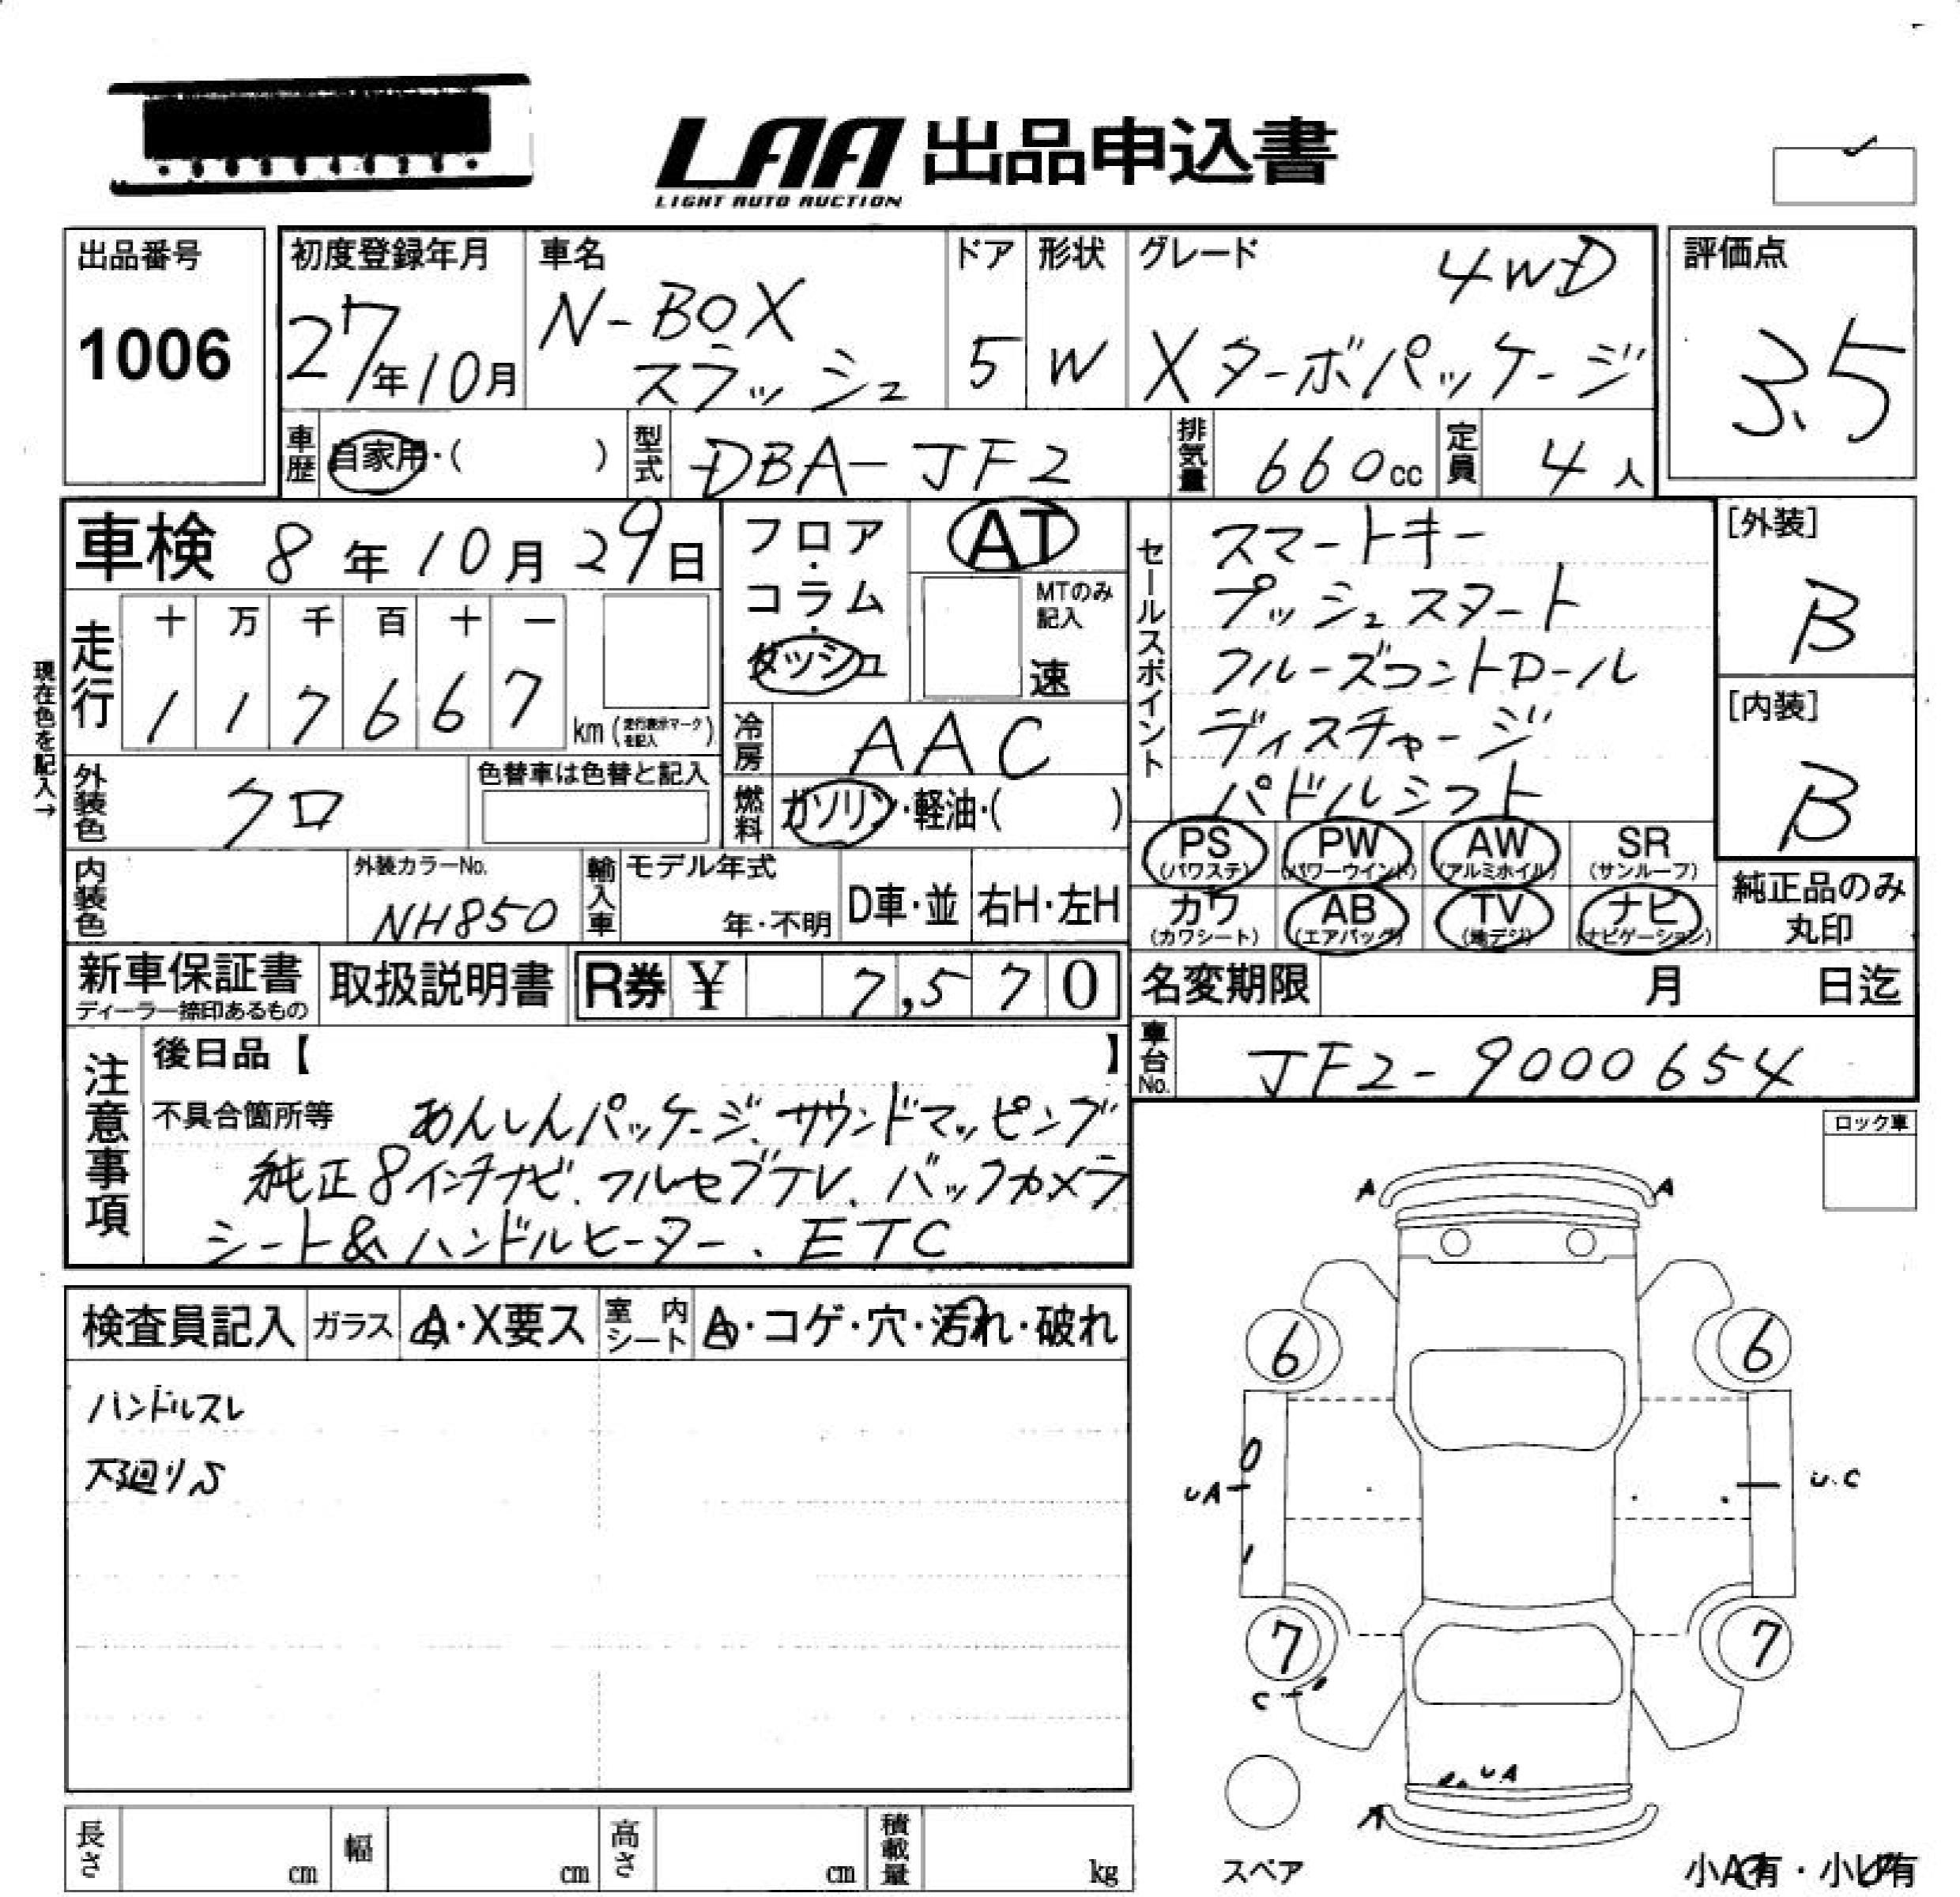 LAA 出品申込書
LIGHT AUTO AUCTION
出品番号
1006
初度登録年月
27年10月
車名
N-BOX
スラッシュ
ドア
5
形状
W
グレード
4WD
Xターボパッケージ
評価点
3.5
車歴
自家用・( )
型式
DBA-JF2
排気量
660cc
定員
4人
車検 8年10月29日
フロア・コラム・ダッシュ
AT
MTのみ記入
速
セールスポイント
スマートキー
プッシュスタート
クルーズコントロール
ディスチャージ
パドルシフト
[外装]
B
[内装]
B
現在色を記入→
走行
十 万 千 百 十 一
1 1 7 6 6 7
km (走行表示マークを記入)
冷房
AAC
外装色
クロ
色替車は色替と記入
燃料
ガソリン・軽油・( )
PS (パワステ)
PW (パワーウインド)
AW (アルミホイル)
SR (サンルーフ)
カワ (カワシート)
AB (エアバッグ)
TV (地デジ)
ナビ (ナビゲーション)
純正品のみ
丸印
内装色
外装カラーNo.
NH850
輸入車
モデル年式
年・不明
D車・並
右H・左H
新車保証書
ディーラー捺印あるもの
取扱説明書
R券 ¥ 7,570
名変期限 月 日迄
車台No.
JF2-9000654
注意事項
後日品【 】
不具合箇所等 あんしんパッケージ、サウンドマッピング
純正8インチナビ、フルセブTV、バックカメラ
シート&ハンドルヒーター、ETC
ロック車
検査員記入
ガラス A・X要ス
室内シート A・コゲ・穴・汚れ・破れ
ハンドルスレ
下廻りS
A A
6 6
UA
U.C
7 7
C
UA
A
スペア
小A有・小U有
長さ cm
幅 cm
高さ cm
積載量 kg